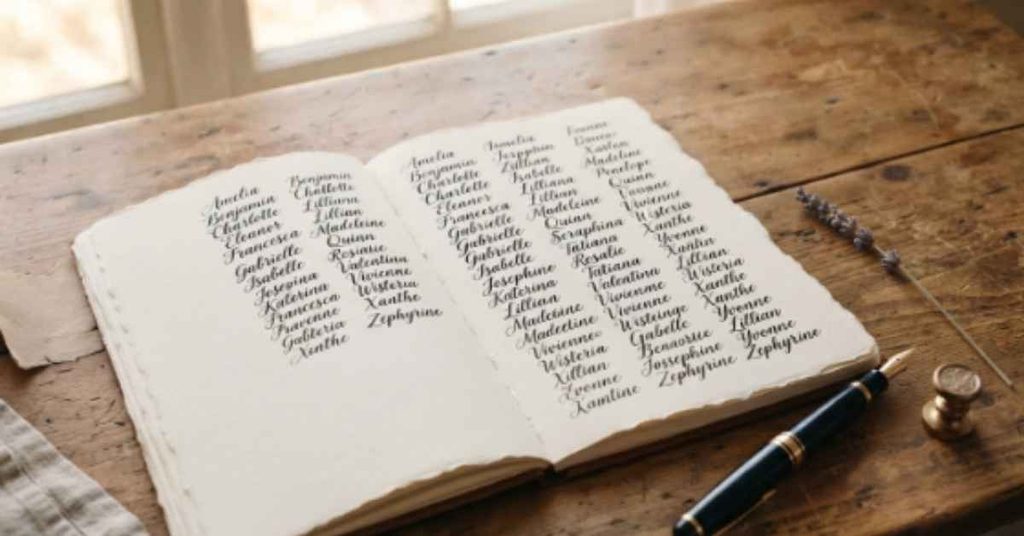 Amelia
Benjamin
Charlotte
Eleaner
Francesca
Gabrielle
Isabelle
Josopina
Katerina
Francesca
Fravenne
Gabteria
Xinthe
Benjamin
Chatlotte
Lilliana
Lillian
Madeleine
Quinn
Rosalie
Valentina
Vivienne
Wisteria
Xanthe
Zephyrine
Amelia
Benjamin
Charlotte
Charlotte
Eleanor
Francesca
Gabrielle
Gabrielle
Gabrielle
Isabelle
Josephine
Katerina
Lillian
Madeoine
Madeetine
Vivienne-
Wisteria
Xillian
Zvonne
Xamtine
Zullian
Isabelle
Lilliana
Lillian
Madeleine
Quinn
Seraphina
Tatiana
Rosalie
Tatiana
Valentina
Vivienne
Vivienne
Wisteinge
Gabelle
Benaorue
Jossephine
Zephyrine
Madeline
Penelope
Quinn
Vivienne
Wisteria
Xanthe
Yvonne
Lillian
Wisteria
Xanthe
Yvonne
Lillian
Yvoanne
Zephyrine